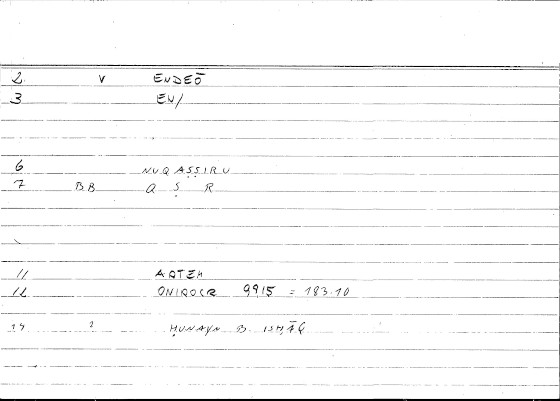 2 V ENDEŌ
3 EN/
6 NUQAṢṢIRU
7 BB Q Ṣ R
11 ARTEM
12 ONIROCR 99,15 = 183.10
14 2 ḤUNAYN B. ISḤĀQ